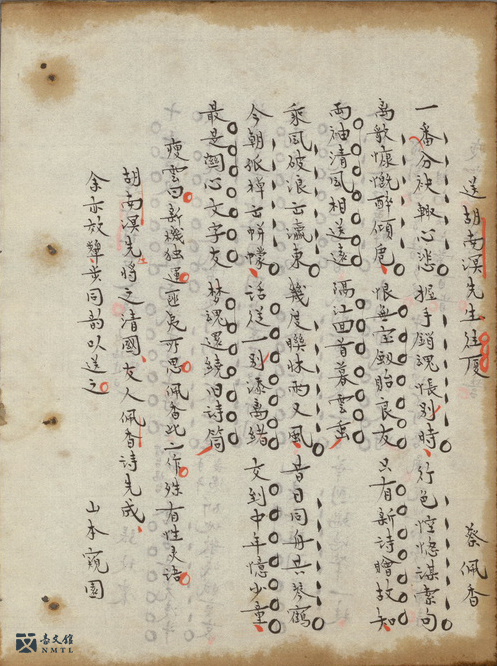 送胡南溟先生往厦 蔡佩香
一番分袂輒心悲 握手銷魂悵別時 行色倥傯謀絮句
离歌慷慨醉傾卮 恨無宝劍貽良友 只有新詩贈故知
両袖清風相送遠 隔江回首暮雲垂
乘風破浪去瀛東 幾度聯牀雨又風 昔日同舟共琴鶴
今朝孤棹去帡幪 話從一別添离緒 交到中年憶少童
最是関心文字友 梦魂還繞旧詩筒
瘦雲曰新機独運匪夷所思佩香此二作殊有性灵語
胡南溟先生將之清國友人佩香詩先成
余亦效顰步同韵以送之 山本窺園
臺文館
NMTL